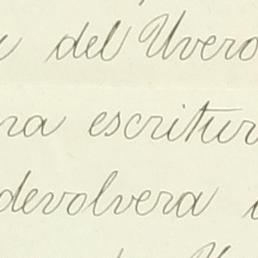 del Uvero
na escritur
devolvera